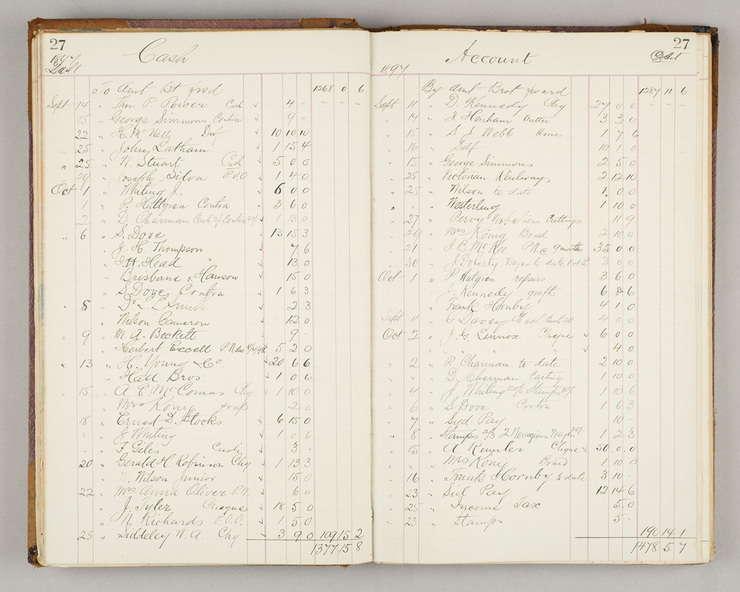 27
Cash
1897
To Amt Bt fwd 1268 0 6
Sept 14 " Thos. P. Power Cash 4 -
15 " George Simmons Contra 9 -
22 " Dft 10 10 10
25 " John Latham 1 15 4
" 25 " W. Stuart Cash 5 0 0
29 " Joseph Silva P.O.O 1 4 0
Oct 1 " Whiting J. 6 0 0
1 " P. Hattgren Contra 3 6 0
2 " D. Charman Cash Contra 1 13 0
" 6 " S. Dove 13 15 3
J. H. Thompson 7 6
Head 13 0
Brisbane & Hansen 15 0
S Dove Contra 1 6 3
8 " 2 3
Nelson Cameron 12 0
9 " M. A. Beckett 9
Herbert Excell P Note 5 2 0
" 13 " H. Young & Co 20 6 6
Hall Bros 1 0 6
15 " A. E. McComas Chq 1 10 0
Mrs König 2 0
18 " Ernest D. Stocks 6 15 0
J. Whiting 1 0 6
F. Giles 3 -
20 " Gerald H. Robinson Chq 1 13 3
" Wilson Junior 15 0
22 " Mrs Anna Oliver P.N. 6 0
J. Tyler Cheque 18 5 0
M. Richards P.O.O. 1 5 0
25 " Siddeley W. A. Chq 3 9 0 109 15 2
1377 15 8
27
Account
1897
By Amt Brot forward 1287 11 6
Sept 11 " D. Kennedy Chq 27 0 0
14 " J Horsham Cutter 3 3 0
15 " S. J. Webb Home 1 7 6
16 " Self 10 1 0
15 " George Simmons 2 5 0
25 " Victorian Railways 2 12 10
25 " Wilson to date 1 0 0
" Westerling 1 10 0
27 " Percy Cuttings 11 9
29 " Mrs König Board 2 10 0
21 " 35 0 0
30 " J. Doherty to date 3 0 0
Oct 1 " P Hatgren repair 3 6 0
J. Kennedy grafts 6 8 6
Frank Hornby 4 1 0
Sept 11 " C Davey 4 0 0
Oct 2 " J. G. Lennox Cheque 6 0 0
" 4 0
2 " P. Charman to date 2 10 0
" D. Charman Carting 1 10 0
4 " J. Whiting 1 10 6
6 " S Dove Contra 1 6 3
7 " Syd Pay 10 -
" 8 " Stamps 1 2 3
15 " A Kugler Cheque 30 0 0
" Mrs König Board 1 10 0
16 " Frank Hornby to date 3 10 -
23 " Sid Pay 12 14 6
25 " Income Tax 5 0
23 " Stamps 5 -
190 14 1
1478 5 7